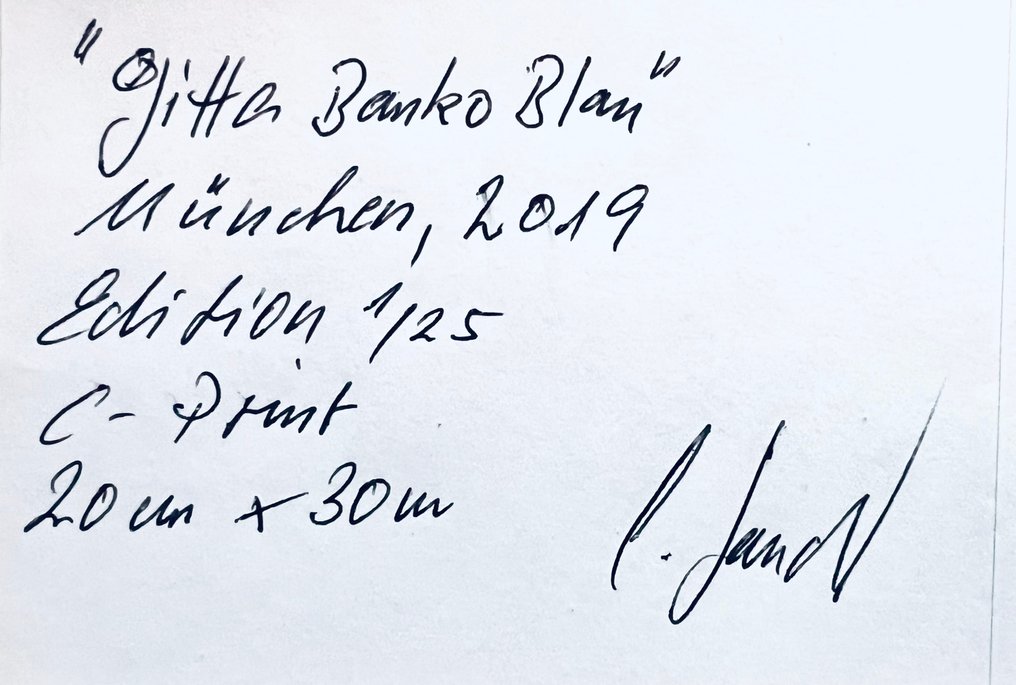 "Gitta Banko Blau"
München, 2019
Edition 1/25
C-Print
20cm x 30m